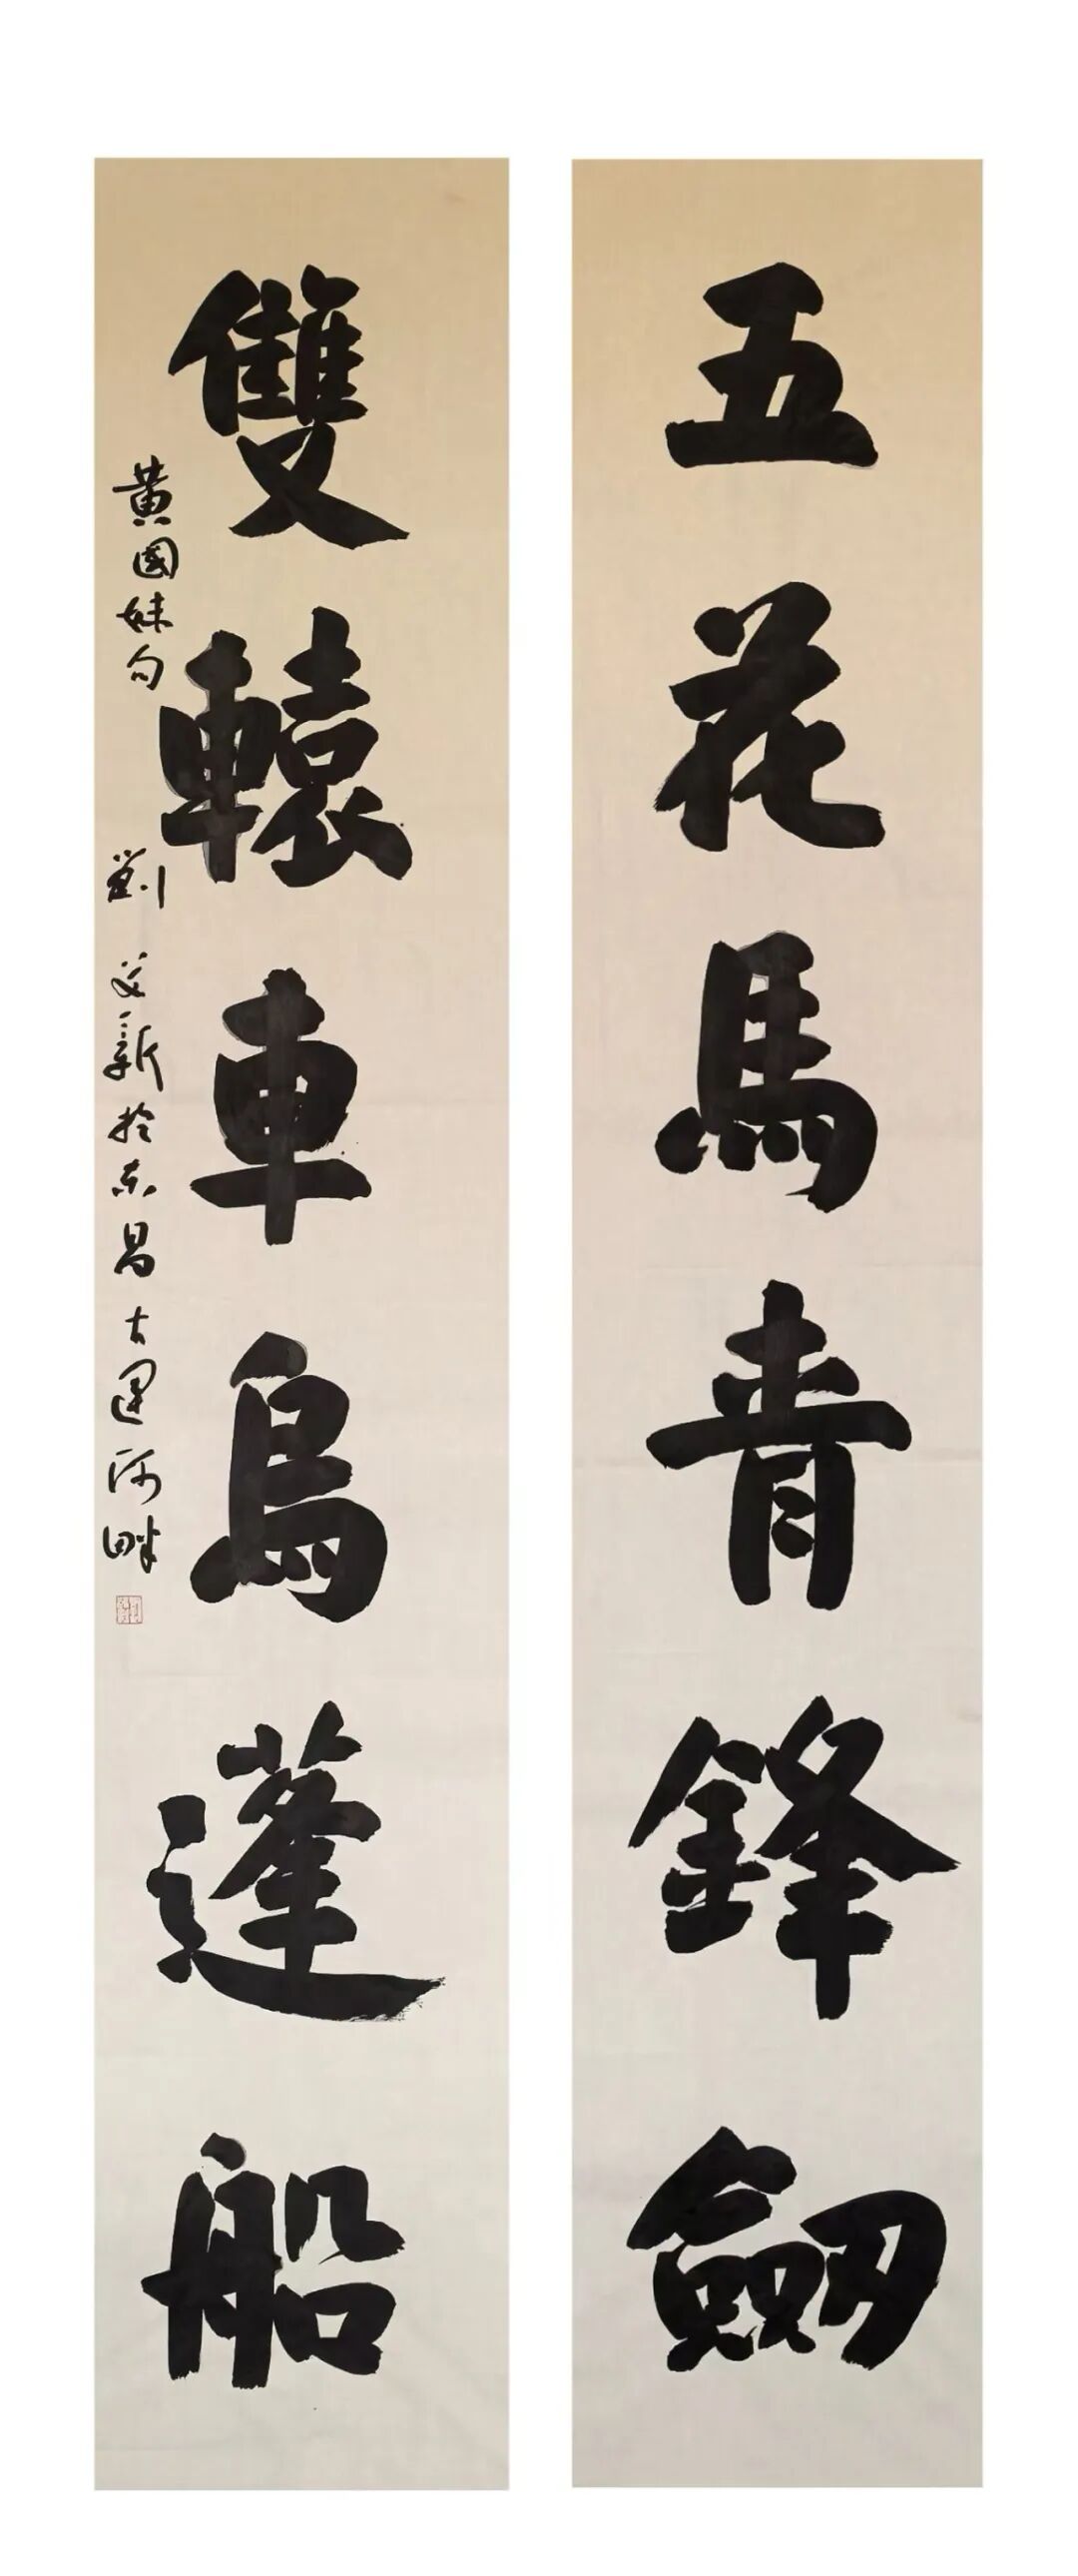 五花馬青鋒劔
雙轅車烏蓬船
黄國妹句
劉文新於东昌古運河畔